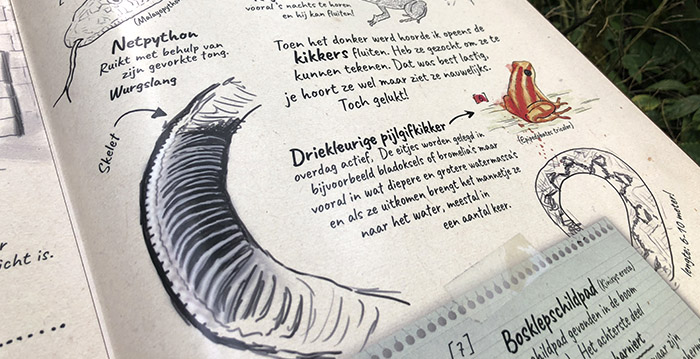 (Malayopython
vooral 's nachts te horen
en hij kan fluiten!
Netpython
Ruikt met behulp van
zijn gevorkte tong.
Wurgslang
Skelet
Toen het donker werd hoorde ik opeens de
kikkers fluiten. Heb ze gezocht om ze te
kunnen tekenen. Dat was best lastig,
je hoort ze wel maar ziet ze nauwelijks.
Toch gelukt!
Driekleurige pijlgifkikker
overdag actief. De eitjes worden gelegd in
bijvoorbeeld bladoksels of bromelia's maar
vooral in wat diepere en grotere watermassa's
en als ze uitkomen brengt het mannetje ze
naar het water, meestal in
een aantal keer.
(Epipedobates tricolor)
lengte: 6-10 meter!
icht is.
[7]
Bosklepschildpad (Kinixys erosa)
childpad gevonden in de boom
Het achterste deel